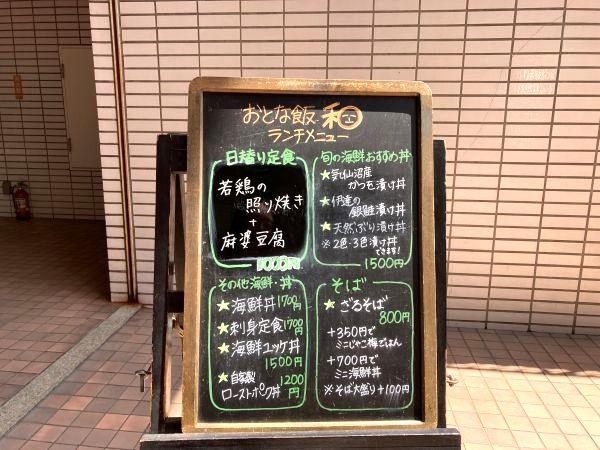 おとな飯 和
ランチメニュー
日替り定食
若鶏の
照り焼き
+
麻婆豆腐
1000円
旬の海鮮おすすめ丼
★気仙沼産
かつを漬け丼
★伊達の
銀鮭漬け丼
★天然ぶり漬け丼
※2色・3色漬け丼
できます!
1500円
その他海鮮・丼
★海鮮丼 1700円
★刺身定食 1700円
★海鮮ユッケ丼
1500円
★自家製 1200
ローストポーク丼 円
そば
★ざるそば
800円
+350円で
ミニじゃこ梅ごはん
+700円で
ミニ海鮮丼
※そば大盛り+100円